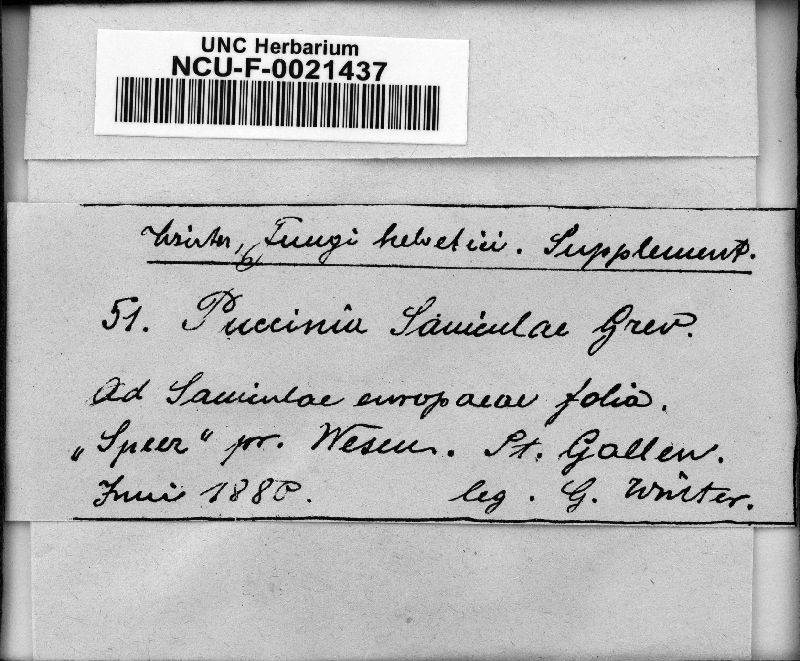 UNC Herbarium
NCU-F-0021437
Winter, Fungi helvetici. Supplement.
51. Puccinia Saniculae Grev.
Ad Saniculae europaeae folia.
„Speer“ pr. Wesen. St. Gallen.
Juni 1880. leg. G. Winter.